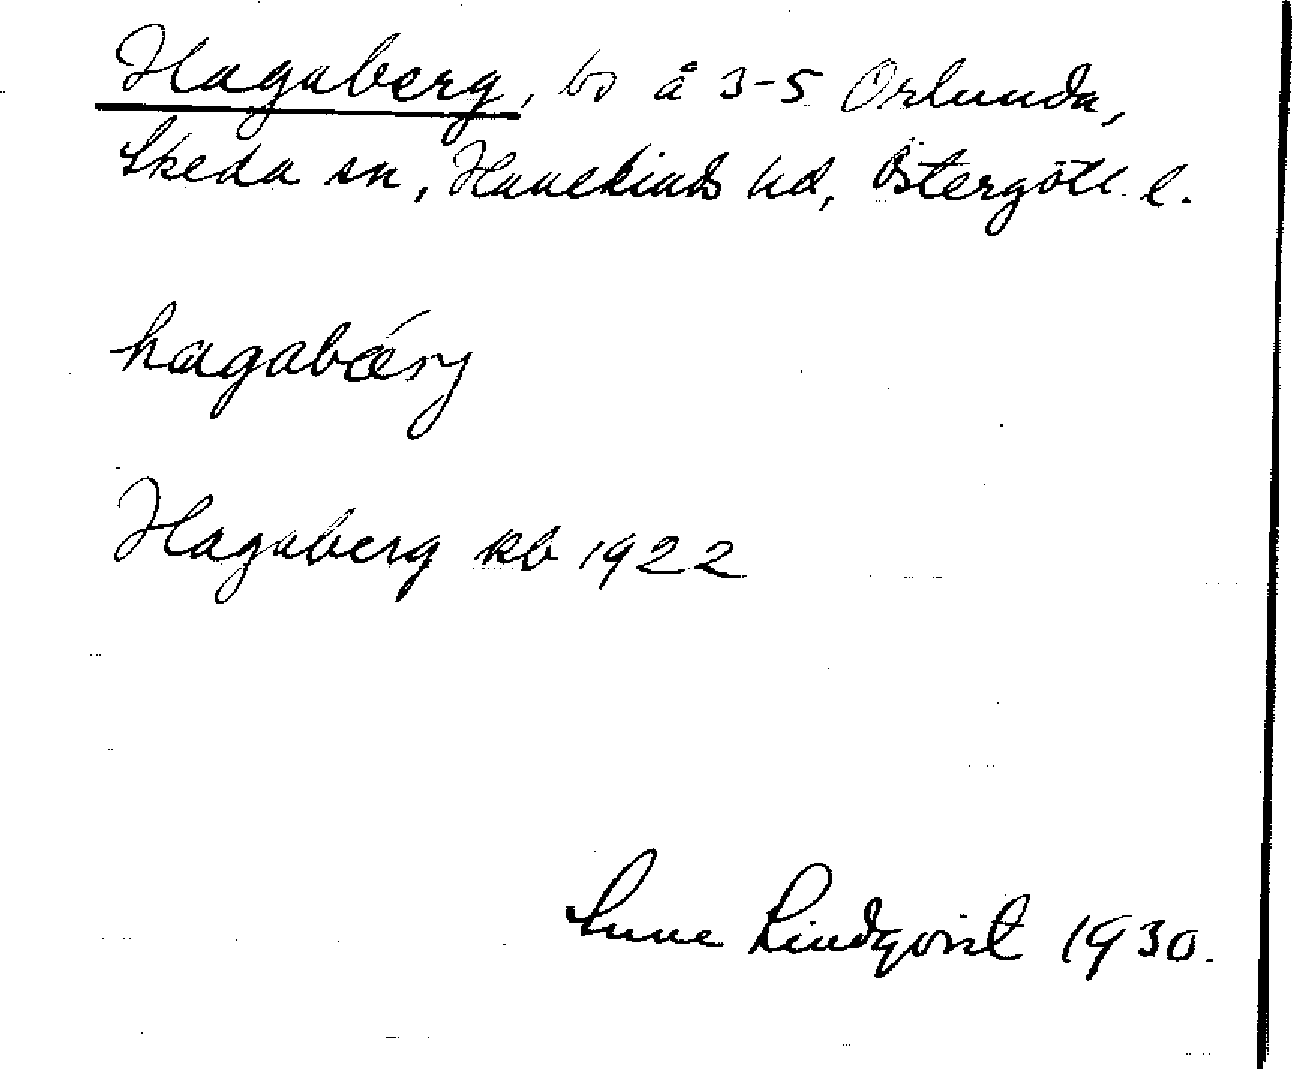 Hagaberg, bs å 3-5 Orlunda,
Skeda sn, Hanekinds hd, Östergötl. l.
hagabæ´rj
Hagaberg kb 1922
Sune Lindqvist 1930.